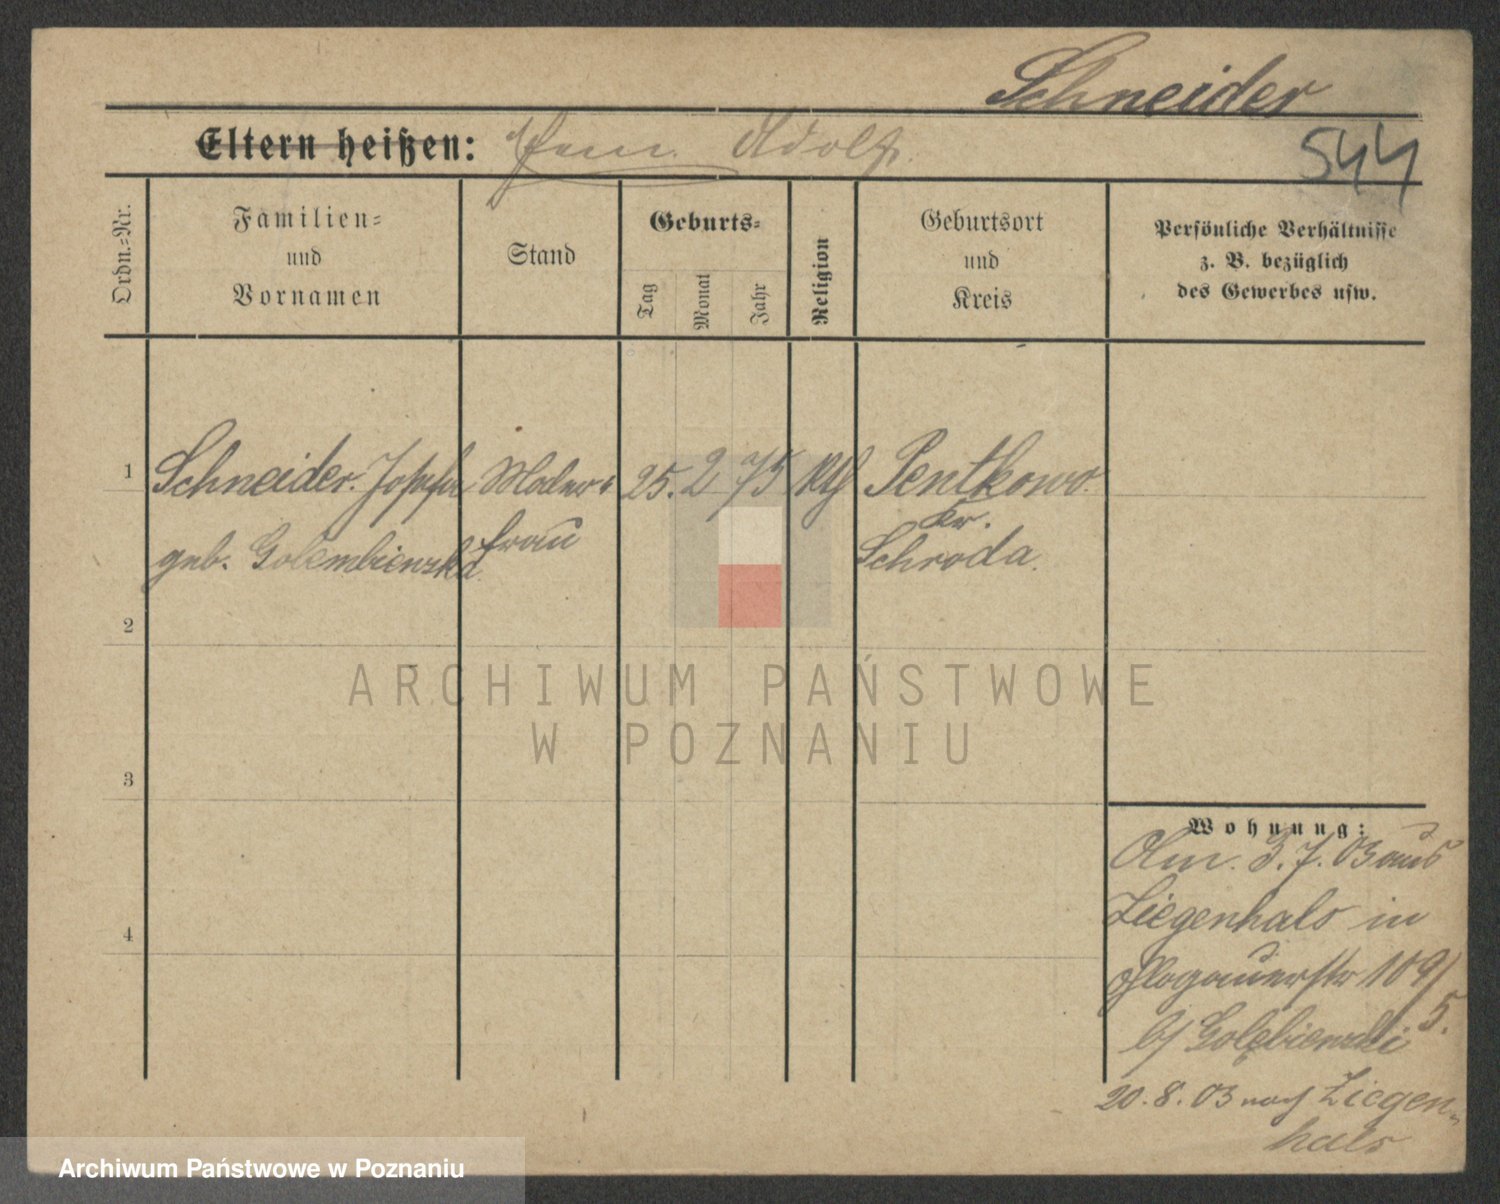 Schneider
Eltern heißen: Adolf.
544
Ordn.=Nr.
Familien=
und
Vornamen
Stand
Geburts=
Tag
Monat
Jahr
Religion
Geburtsort
und
Kreis
Persönliche Verhältnisse
z. B. bezüglich
des Gewerbes usw.
1
Schneider. Josefa Maler= 25. 2 75 Kth Pentkowo.
frau Kr.
geb. Golembiewska. Schroda.
2
ARCHIWUM PAŃSTWOWE
W POZNANIU
3
4
Wohnung:
3.7.03 aus
Ziegenhals in
Glogauerstr 109/
5.
b/ Golębiewski
20.8.03 nach Ziegen-
hals
Archiwum Państwowe w Poznaniu